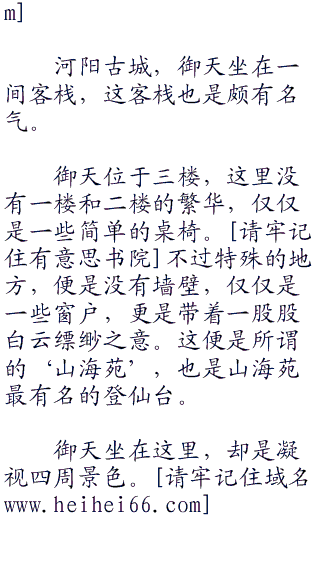 m]
河阳古城，御天坐在一
间客栈，这客栈也是颇有名
气。
御天位于三楼，这里没
有一楼和二楼的繁华，仅仅
是一些简单的桌椅。[请牢记
住有意思书院]不过特殊的地
方，便是没有墙壁，仅仅是
一些窗户，更是带着一股股
白云缥缈之意。这便是所谓
的‘山海苑’，也是山海苑
最有名的登仙台。
御天坐在这里，却是凝
视四周景色。[请牢记住域名
www.heihei66.com]